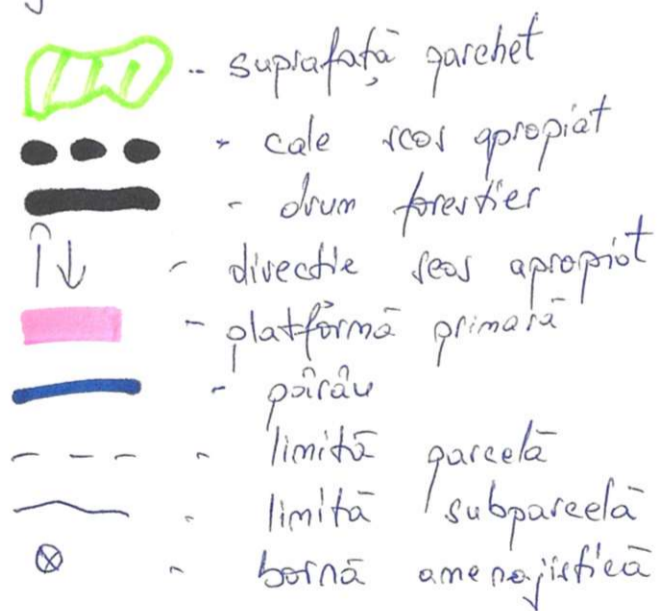 - suprafață parchet
- cale scos apropiat
- drum forestier
- direcție scos apropiat
- platformă primară
- pârâu
- limită parcelă
- limită subparcelă
- bornă amenajistică